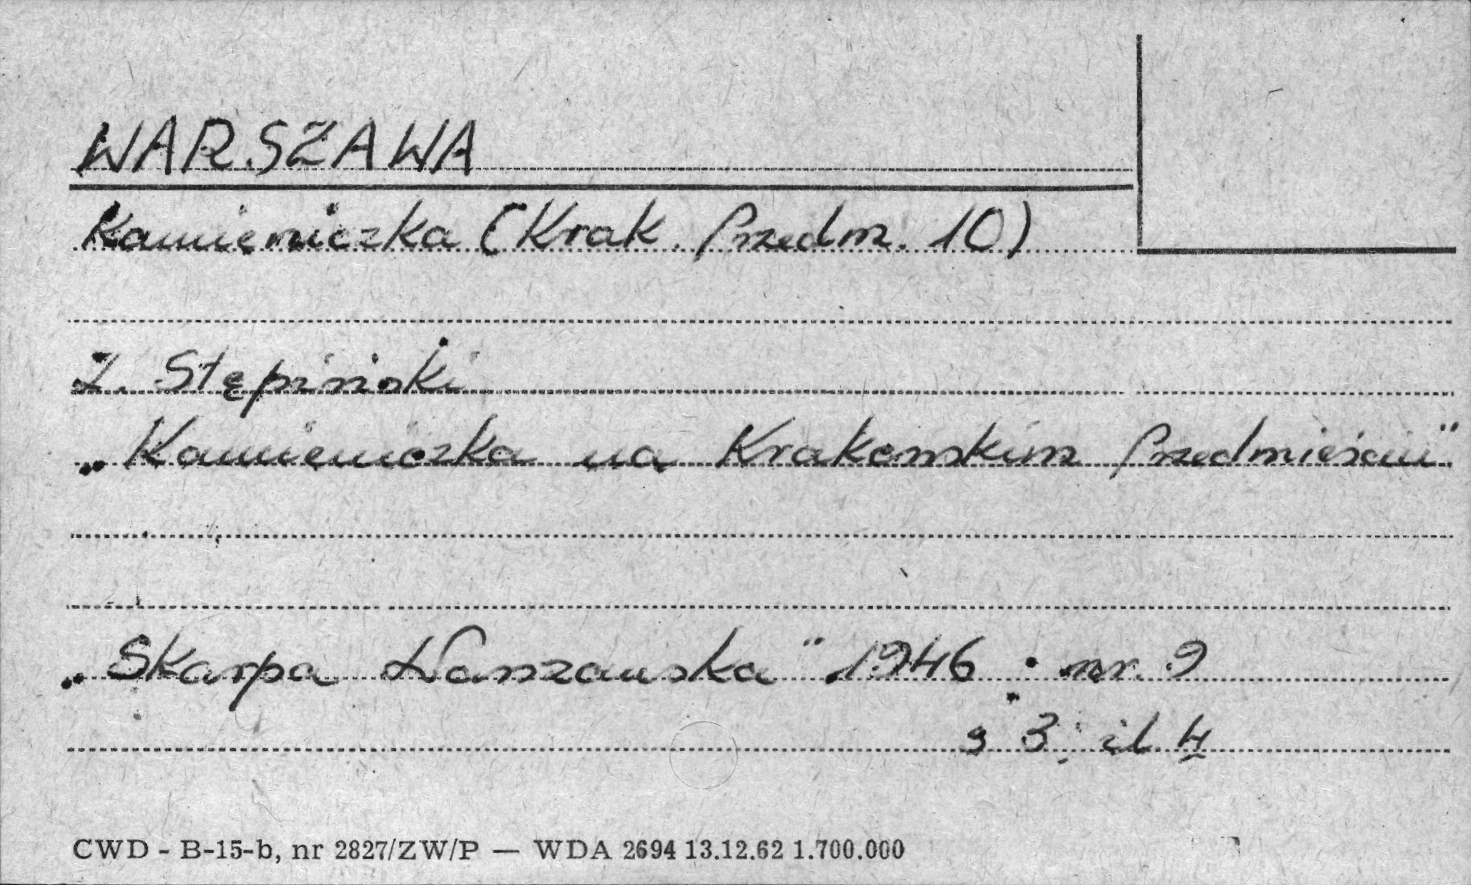 WARSZAWA
Kamieniczka (Krak. Przedm. 10)
Z. Stępiński
„Kamieniczka na Krakowskim Przedmieściu"
„Skarpa Warszawska" 1946 . nr. 9
s 3; il 4
CWD - B-15-b, nr 2827/ZW/P — WDA 2694 13.12.62 1.700.000